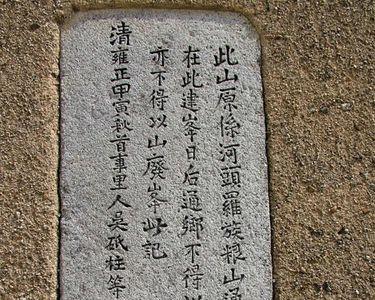 此山原係河頭羅族根山通
在此建峯日后通鄉不得以
亦不得以山廢峯此記
清雍正甲寅秋首事里人吳砥柱等